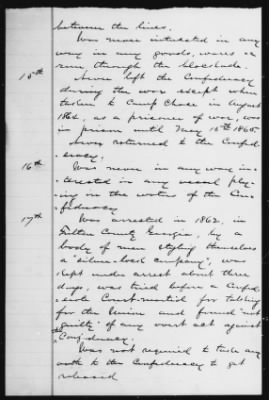 between the lines.
Was never interested in any
way in any goods, wares &c
run through the blockade.
15th Never left the Confederacy
during the war except when
taken to Camp Chase in August
1864, as a prisoner of war, was
in prison until May 15th 1865.
Never returned to the Confed-
eracy.
16th Was never in any way in-
terested in any vessel ply-
ing on the waters of the Con-
federacy.
17th Was arrested in 1862, in
Fulton County Georgia, by a
body of men styling themselves
a "silver-band company", was
kept under arrest about three
days, was tried before a Confed-
erate Court-martial for talking
for the Union and found "not
guilty" of any overt act against
Confederacy.
Was not required to take any
oath to the Confederacy to get
released